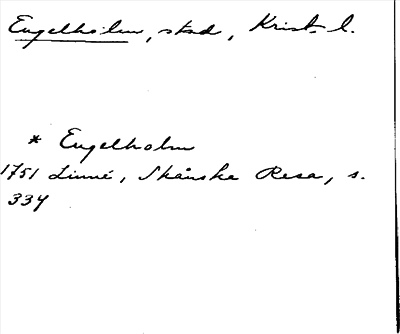 Engelholm, stad, Krist. l.
* Engelholm
1751 Linné, Skånska Resa, s.
334